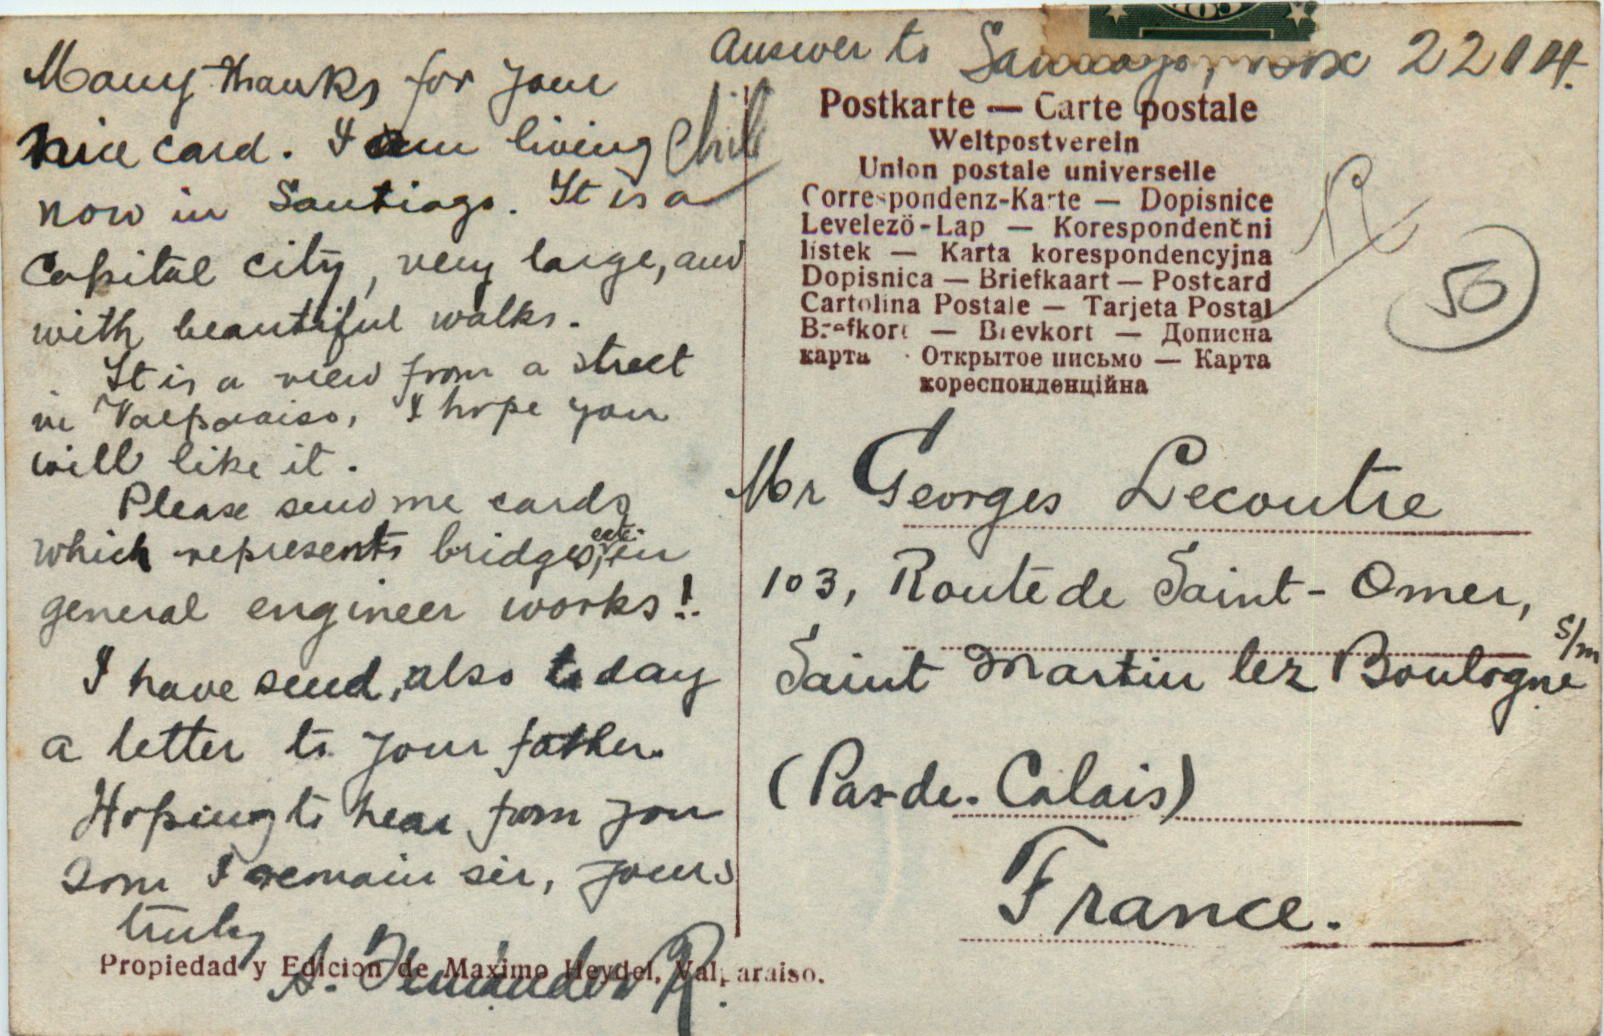 Answer to Santiago, box 2204.
Chile
Many thanks for your
nice card. I am living
now in Santiago. It is a
Capital city, very large, and
with beautiful walks.
It is a view from a street
in Valparaiso, I hope you
will like it.
Please send me cards
which represents bridges, etc. in
general engineer works!
I have send, also to day
a letter to your father.
Hoping to hear from you
soon I remain sir, yours
truly
A. Fernandez R.
Propiedad y Edicion de Maximo Heydel, Valparaiso.
Postkarte — Carte postale
Weltpostverein
Union postale universelle
Correspondenz-Karte — Dopisnice
Levelező-Lap — Korespondenčni
listek — Karta korespondencyjna
Dopisnica — Briefkaart — Postcard
Cartolina Postale — Tarjeta Postal
Brefkort — Brevkort — Дописна
карта · Открытое письмо — Карта
кореспонденційна
50
Mr Georges Lecoutre
103, Route de Saint-Omer,
Saint Martin lez Boulogne s/m
(Pas-de-Calais)
France.